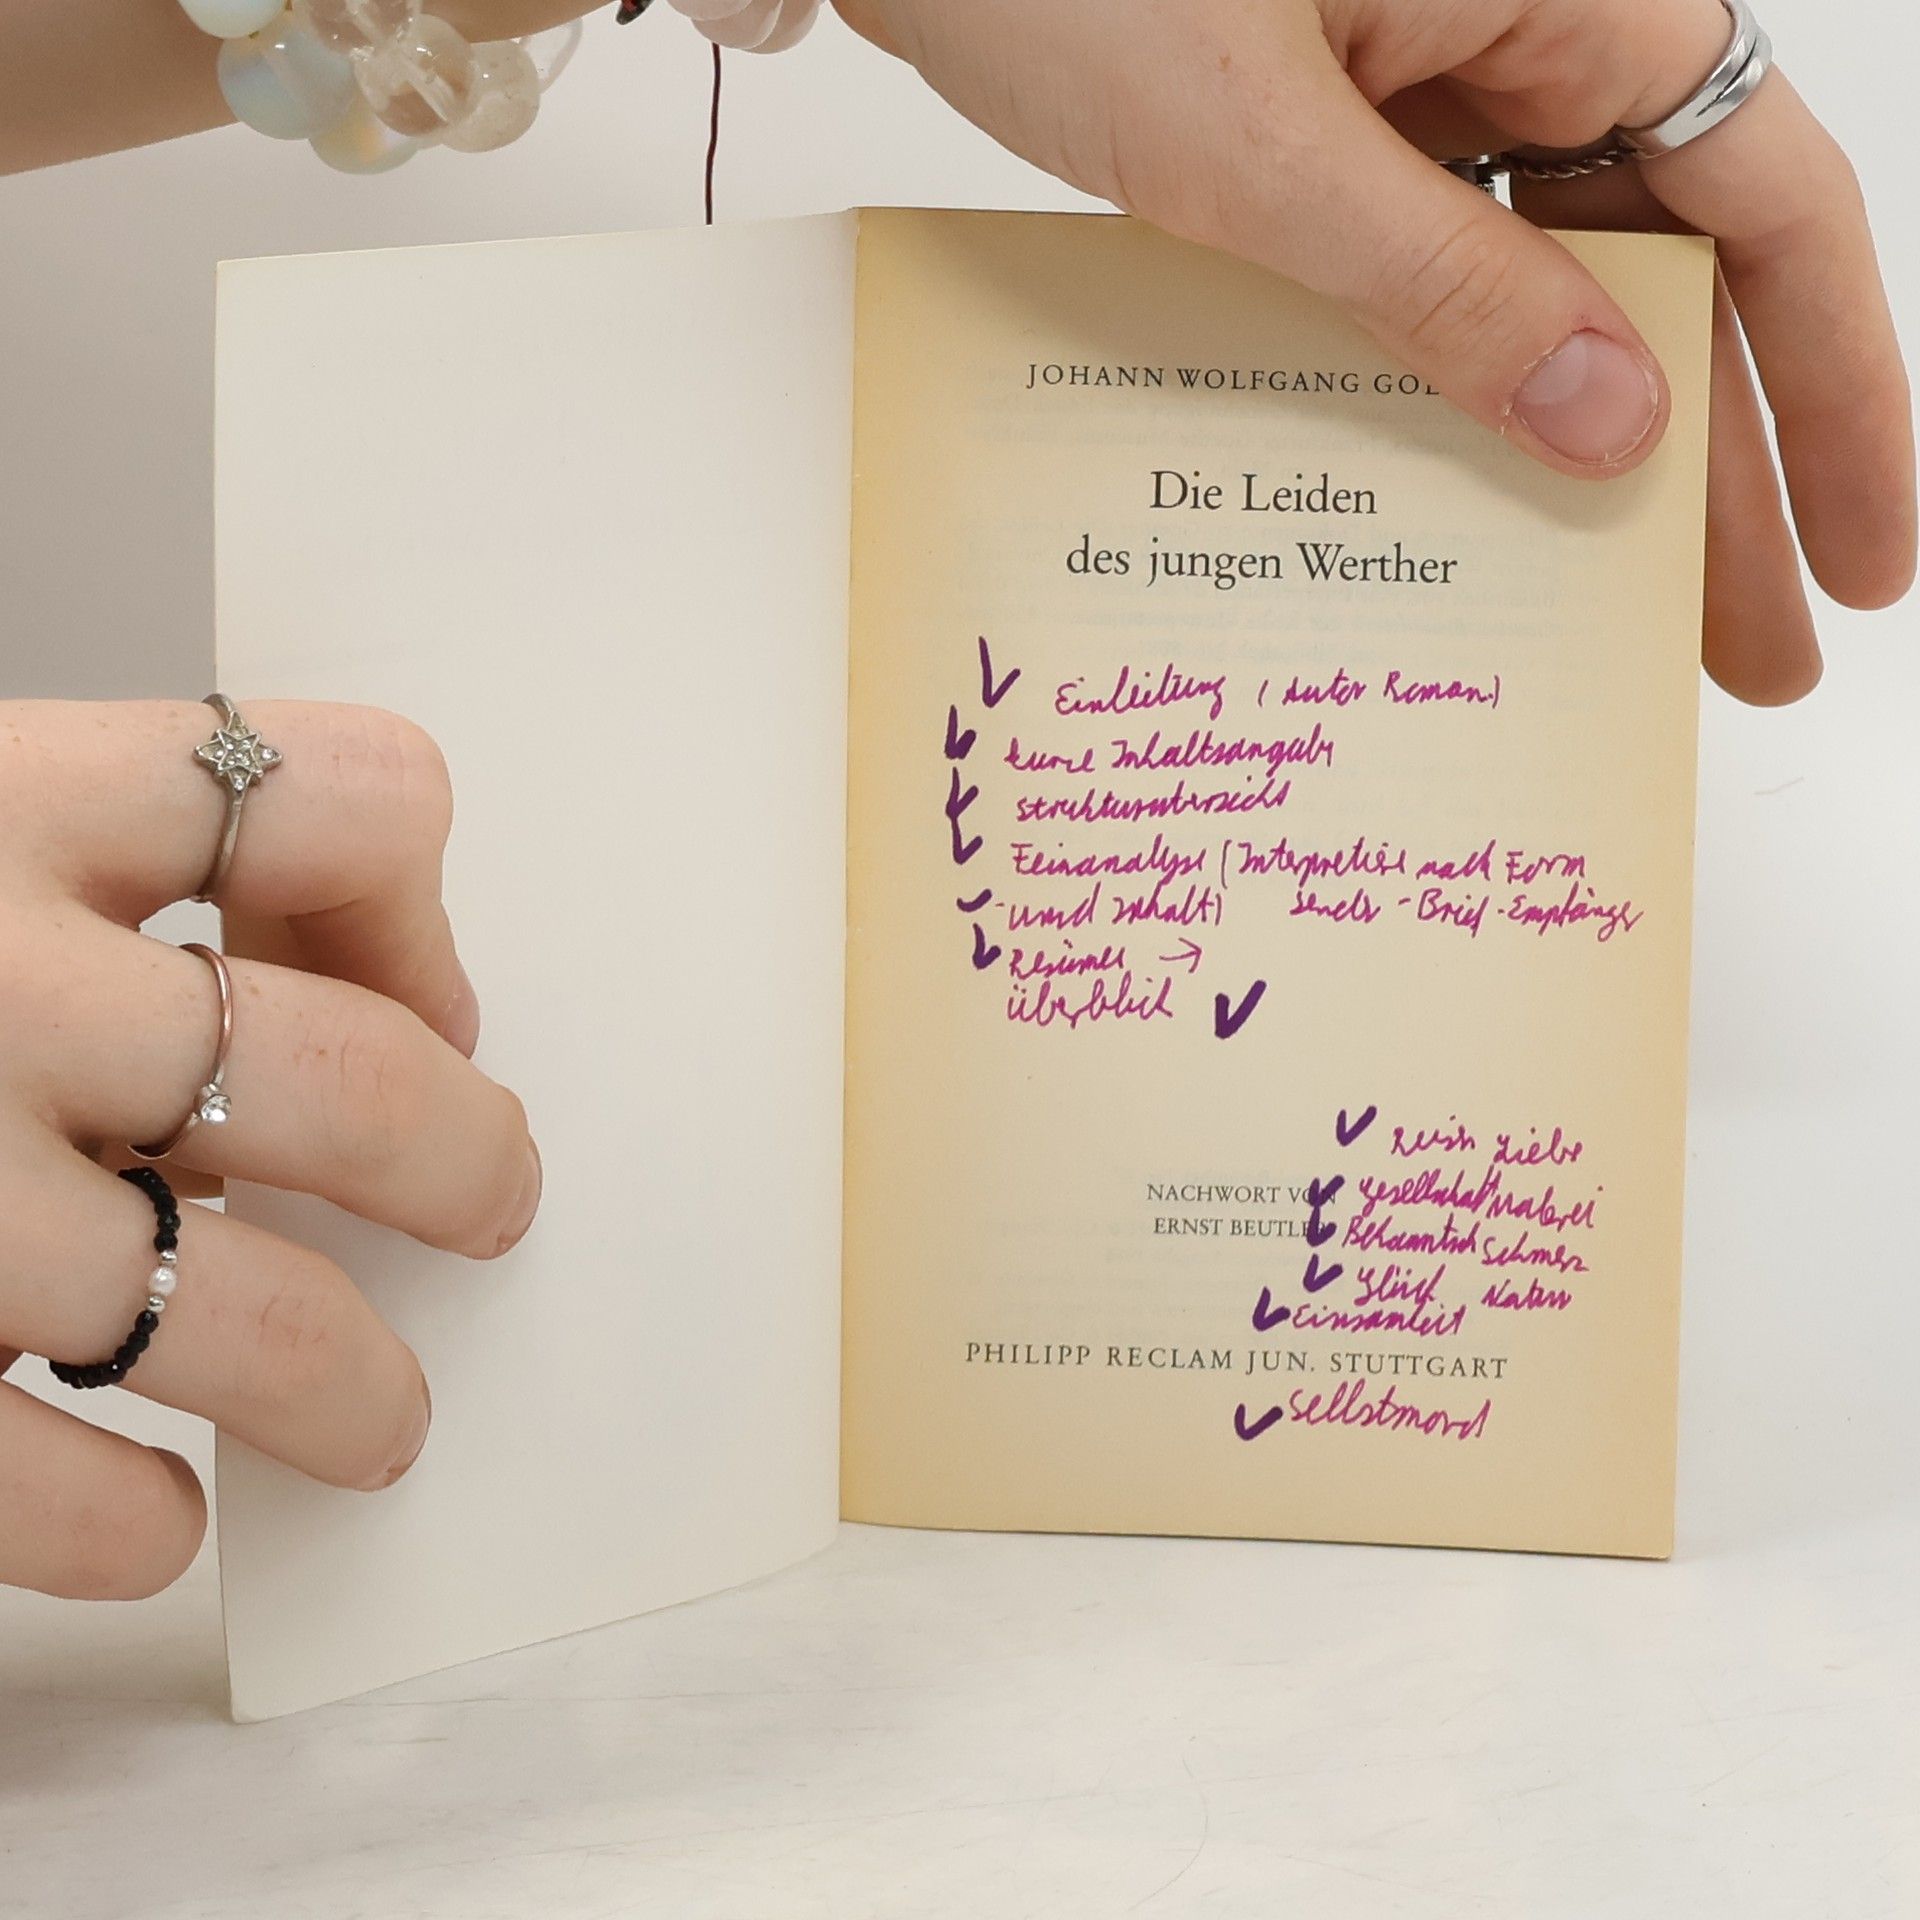 JOHANN WOLFGANG GOE
Die Leiden
des jungen Werther
Einleitung (Autor Roman)
kurze Inhaltsangabe
Strukturübersicht
Feinanalyse (Interpretiere nach Form
- und Inhalt) Sender - Brief - Empfänger
Resümee →
überblick
Liebe
NACHWORT VON
Gesellschaft Malerei
ERNST BEUTLER
Bekanntsch Schmerz
Glück Natur
Einsamkeit
PHILIPP RECLAM JUN. STUTTGART
Selbstmord